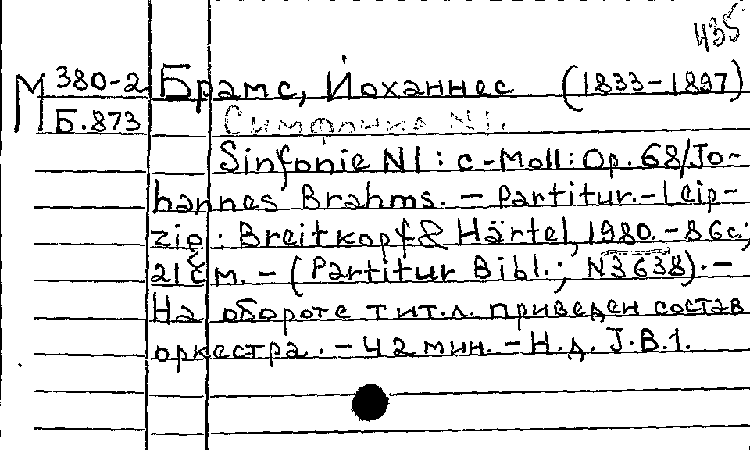 435
М 380-2 Брамс, Йоханнес (1833-1897)
Б.873 Симфония N1.
Sinfonie N1 : c-Moll : Op. 68/Jo-
hannes Brahms. - Partitur. - Leip-
zig : Breitkopf & Härtel, 1980. - 86 c;
21 см. - (Partitur Bibl.; N3638). -
На обороте тит.л. приведен состав
оркестра. - 42 мин. - Н.д. J.B.1.